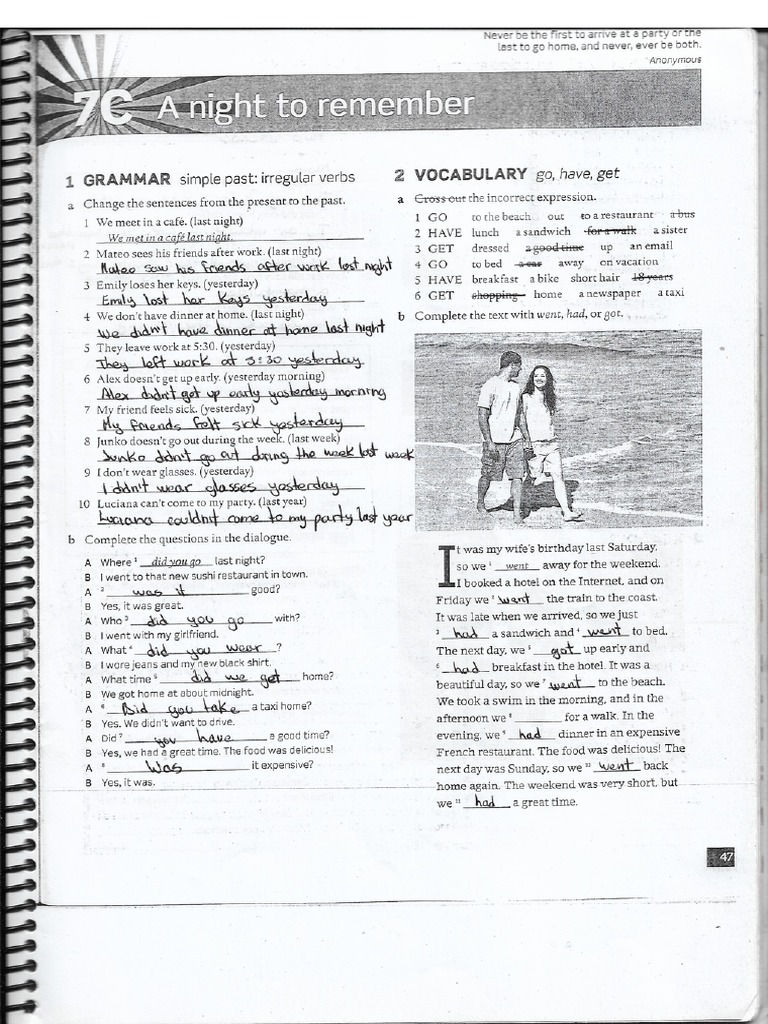 Never be the first to arrive at a party or the
last to go home, and never, ever be both.
Anonymous
7C A night to remember
1 GRAMMAR simple past: irregular verbs
a Change the sentences from the present to the past.
1 We meet in a café. (last night)
We met in a café last night.
2 Mateo sees his friends after work. (last night)
Mateo saw his friends after work last night
3 Emily loses her keys. (yesterday)
Emily lost her keys yesterday
4 We don't have dinner at home. (last night)
We didn't have dinner at home last night
5 They leave work at 5:30. (yesterday)
They left work at 5:30 yesterday
6 Alex doesn't get up early. (yesterday morning)
Alex didn't get up early yesterday morning
7 My friend feels sick. (yesterday)
My friends felt sick yesterday
8 Junko doesn't go out during the week. (last week)
Junko didn't go out during the week last week
9 I don't wear glasses. (yesterday)
I didn't wear glasses yesterday
10 Luciana can't come to my party. (last year)
Luciana couldn't come to my party last year
b Complete the questions in the dialogue.
A Where 1 did you go last night?
B I went to that new sushi restaurant in town.
A 2 was it good?
B Yes, it was great.
A Who 3 did you go with?
B I went with my girlfriend.
A What 4 did you wear ?
B I wore jeans and my new black shirt.
A What time 5 did we get home?
B We got home at about midnight.
A 6 Did you take a taxi home?
B Yes. We didn't want to drive.
A Did 7 you have a good time?
B Yes, we had a great time. The food was delicious!
A 8 Was it expensive?
B Yes, it was.
2 VOCABULARY go, have, get
a Cross out the incorrect expression.
1 GO to the beach out to a restaurant a bus
2 HAVE lunch a sandwich for a walk a sister
3 GET dressed a good time up an email
4 GO to bed a car away on vacation
5 HAVE breakfast a bike short hair 18 years
6 GET shopping home a newspaper a taxi
b Complete the text with went, had, or got.
It was my wife's birthday last Saturday,
so we 1 went away for the weekend.
I booked a hotel on the Internet, and on
Friday we 2 went the train to the coast.
It was late when we arrived, so we just
3 had a sandwich and 4 went to bed.
The next day, we 5 got up early and
6 had breakfast in the hotel. It was a
beautiful day, so we 7 went to the beach.
We took a swim in the morning, and in the
afternoon we 8 for a walk. In the
evening, we 9 had dinner in an expensive
French restaurant. The food was delicious! The
next day was Sunday, so we 10 went back
home again. The weekend was very short, but
we 11 had a great time.
47